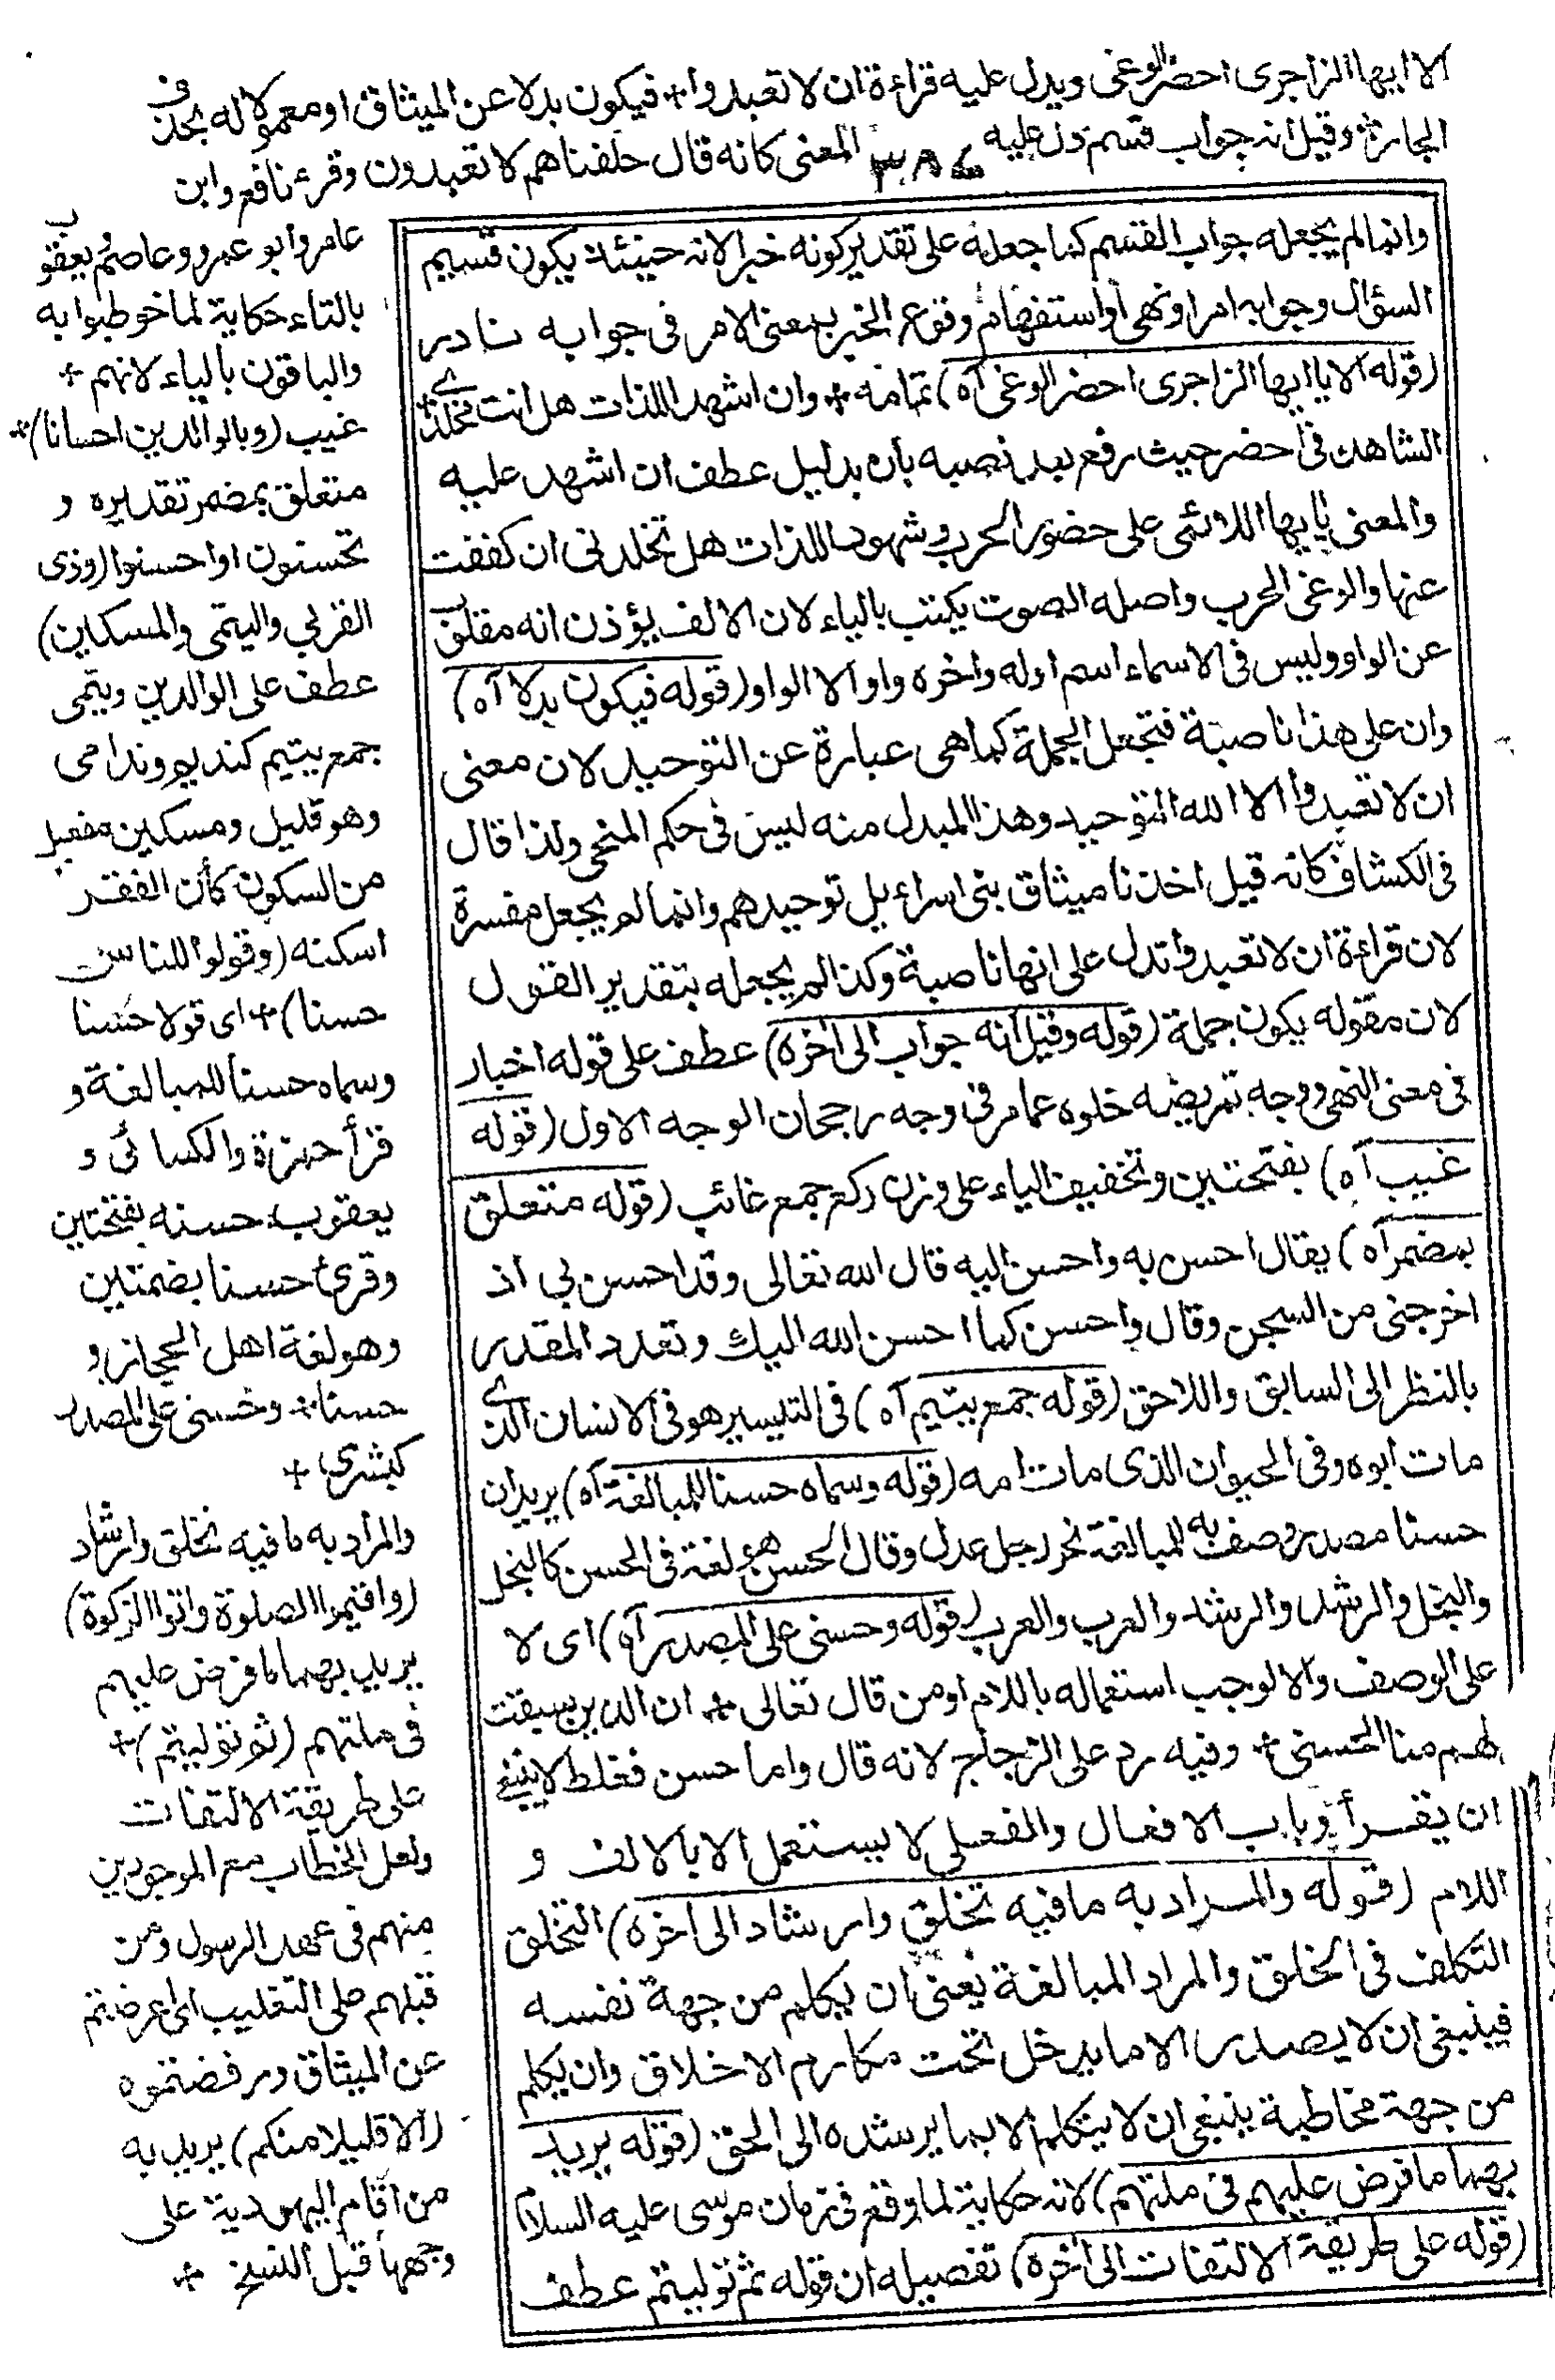 الا ايها الزاجرى احضر الوغى ويدل عليه قراءة ان لا تعبدوا + فيكون بدلا عن الميثاق او معمولا له بحذف
الجار ÷ وقيل انه جواب قسم دل عليه المعنى كانه قال حلفناهم لا تعبدون وقرئ نافع وابن
عامر وابو عمرو وعاصم ويعقوب
بالتاء حكاية لما خوطبوا به
والباقون بالياء لانهم +
غيب (وبالوالدين احسانا) +
متعلق بمضمر تقديره و
تحسنون او احسنوا (وذى
القربى واليتمى والمسكين)
عطف على الوالدين ويتمى
جمع يتيم كنديم وندامى
وهو قليل ومسكين مفعيل
من السكون كأن الفقر
اسكنه (وقولوا للناس
حسنا) + اى قولا حسنا
وسماه حسنا للمبالغة و
قرأ حمزة والكسائى و
يعقوب حسنا بفتحتين
وقرئ حسنا بضمتين
وهو لغة اهل الحجاز و
حسنا + وحسنى على المصدر
كبشرى +
والمراد به ما فيه تخلق وارشاد
(واقيموا الصلوة واتوا الزكوة)
يريد بهما ما فرض عليهم
فى ملتهم (ثم توليتم) +
على طريقة الالتفات
ولعل الخطاب مع الموجودين
منهم فى عهد الرسول ومن
قبلهم على التغليب اى اعرضتم
عن الميثاق ورفضتموه
(الا قليلا منكم) يريد به
من اقام اليهودية على
وجهها قبل النسخ +
وانما لم يجعله جواب القسم كما جعله على تقدير كونه خبرا لانه حينئذ يكون قسيم
السؤال وجوابه امر او نهى او استفهام وقوع الخبر بمعنى الامر فى جوابه نادر
(قوله الا يا ايها الزاجرى احضر الوغى آه) تمامه + وان اشهد اللذات هل انت مخلدى +
الشاهد فى احضر حيث رفع بعد نصبه بان بدليل عطف ان اشهد عليه
والمعنى يا ايها اللائمى على حضور الحرب وشهود اللذات هل تخلدنى ان كففت
عنها والوغى الحرب واصله الصوت يكتب بالياء لان الالف يؤذن انه مقلوب
عن الواو وليس فى الاسماء اسم اوله واخره واو الا الواو (قوله فيكون بدلا آه)
وان على هذا ناصبة فتجعل الجملة كما هى عبارة عن التوحيد لان معنى
ان لا تعبدوا الا الله التوحيد وهذا المبدل منه ليس فى حكم المنحى ولذا قال
فى الكشاف كانه قيل اخذنا ميثاق بنى اسراءيل توحيدهم وانما لم يجعل مفسرة
لان قراءة ان لا تعبدوا تدل على انها ناصبة وكذا لم يجعله بتقدير القول
لان مقوله يكون جملة (قوله وقيل انه جواب الى اخره) عطف على قوله اخبار
فى معنى النهى ووجه تمريضه خلوه عما مر فى وجه رجحان الوجه الاول (قوله
غيب آه) بفتحتين وتخفيف الياء على وزن ركع جمع غائب (قوله متعلق
بمضمر آه) يقال احسن به واحسن اليه قال الله تعالى وقد احسن بى اذ
اخرجنى من السجن وقال واحسن كما احسن الله اليك وتعدد المقدر
بالنظر الى السابق واللاحق (قوله جمع يتيم آه) فى التيسير هو فى الانسان الذى
مات ابوه وفى الحيوان الذى مات امه (قوله وسماه حسنا للمبالغة آه) يريد ان
حسنا مصدر وصف به للمبالغة نحو رجل عدل وقال الحسن هو لغة فى الحسن كالبخل
والبخل والرشد والرشد والعرب والعرب (قوله وحسنى على المصدر آه) اى لا
على الوصف والا لوجب استعماله باللام او من قال تعالى + ان الذين سبقت
لهم منا الحسنى + وفيه رد على الزجاج لانه قال واما حسن فغلط لا ينبغى
ان يقرأ وباب الافعال والفعلى لا يستعمل الا بالالف و
اللام (قوله والمراد به ما فيه تخلق وارشاد الى اخره) التخلق
التكلف فى الخلق والمراد المبالغة يعنى ان يكلم من جهة نفسه
فينبغى ان لا يصدر الا ما يدخل تحت مكارم الاخلاق وان يكلم
من جهة مخاطبة ينبغى ان لا يتكلم الا بما يرشده الى الحق (قوله يريد
بهما ما فرض عليهم فى ملتهم) لانه حكاية لما وقع فى زمان موسى عليه السلام
(قوله على طريقة الالتفات الى اخره) تفصيله ان قوله ثم توليتم عطف